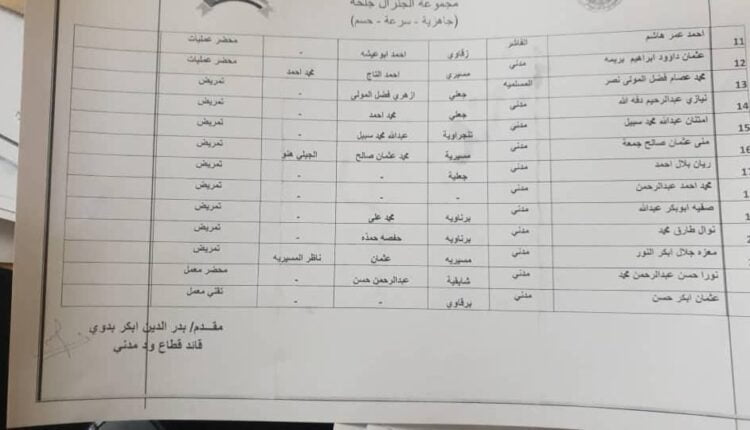 مجموعة الجنرال جلحة
(جاهزية - سرعة - حسم)
11 احمد عمر هاشم الفاشر زغاوي احمد ابوعيشه - محضر عمليات
12 عثمان داوود ابراهيم بريمه مدني مسيري احمد التاج محمد احمد محضر عمليات
13 محمد عصام فضل المولى نصر المسلميه جعلي ازهري فضل المولى - تمريض
14 نيازي عبدالرحيم دفه الله مدني جعلي محمد احمد - تمريض
15 امتنان عبدالله محمد سبيل مدني تلجراوية عبدالله محمد سبيل - تمريض
16 منى عثمان صالح جمعة مدني مسيرية محمد عثمان صالح الجيلي هنو تمريض
ريان بلال احمد مدني جعلية - - تمريض
محمد احمد عبدالرحمن مدني - - - تمريض
صفيه ابوبكر عبدالله مدني برناويه محمد علي - تمريض
نوال طارق محمد مدني برناويه حفصه حمذه - تمريض
معزه جلال ابكر النور مدني مسيريه عثمان ناظر المسيريه تمريض
نورا حسن عبدالرحمن محمد مدني شايقية عبدالرحمن حسن - محضر معمل
عثمان ابكر حسن مدني برقاوي - - تقني معمل
مقدم/ بدر الدين ابكر بدوي
قائد قطاع ود مدني